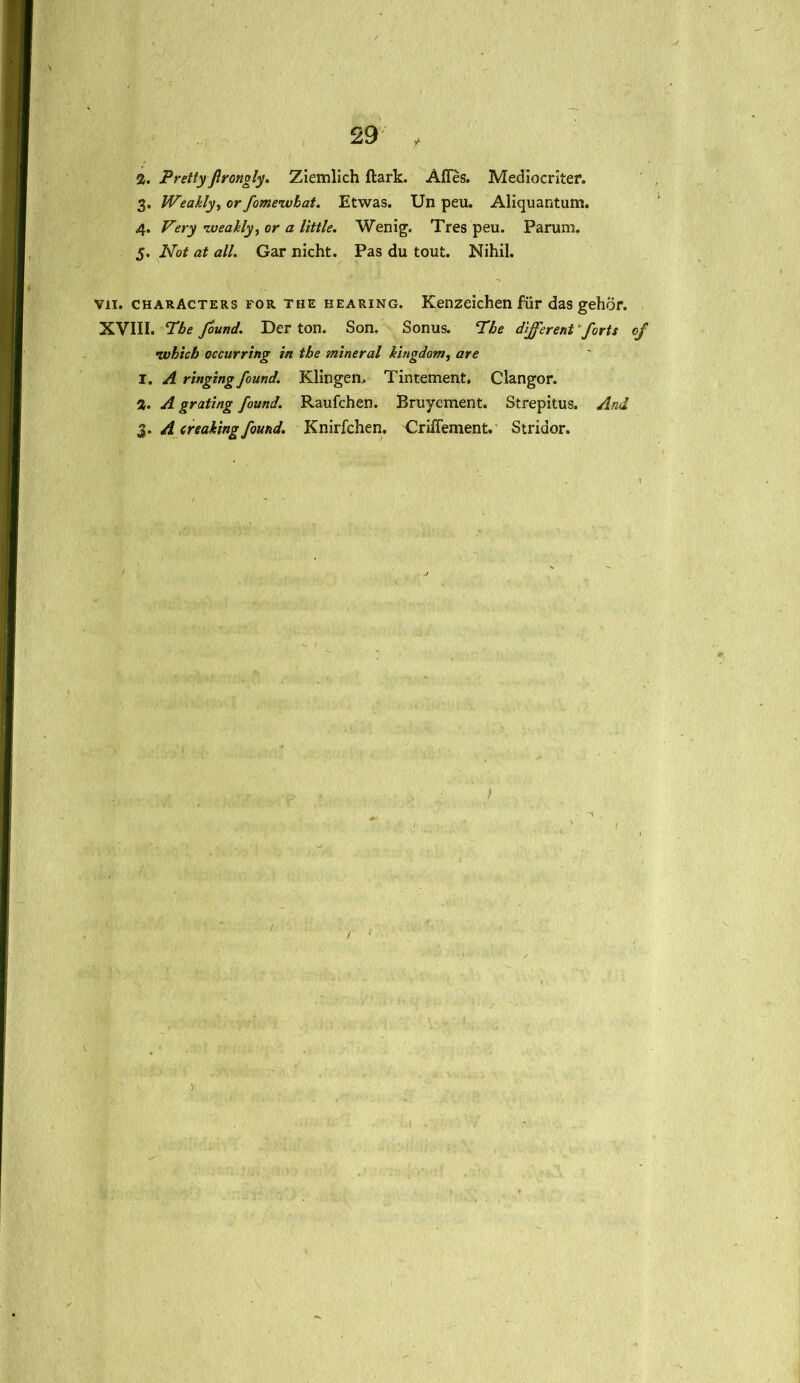 29
2. Pretty ſtrongly. Ziemlich ſtark. Aſſès. Mediocriter.
3. Weakly, or ſomewhat. Etwas. Un peu. Aliquantum.
4. Very weakly, or a little. Wenig. Tres peu. Parum.
5. Not at all. Gar nicht. Pas du tout. Nihil.
VII. CHARACTERS FOR THE HEARING. Kenzeichen für das gehör.
XVIII. The ſound. Der ton. Son. Sonus. The different ſorts of
which occurring in the mineral kingdom, are
1. A ringing ſound. Klingen. Tintement. Clangor.
2. A grating ſound. Rauſchen. Bruyement. Strepitus. And
3. A creaking ſound. Knirſchen. Criſſement. Stridor.